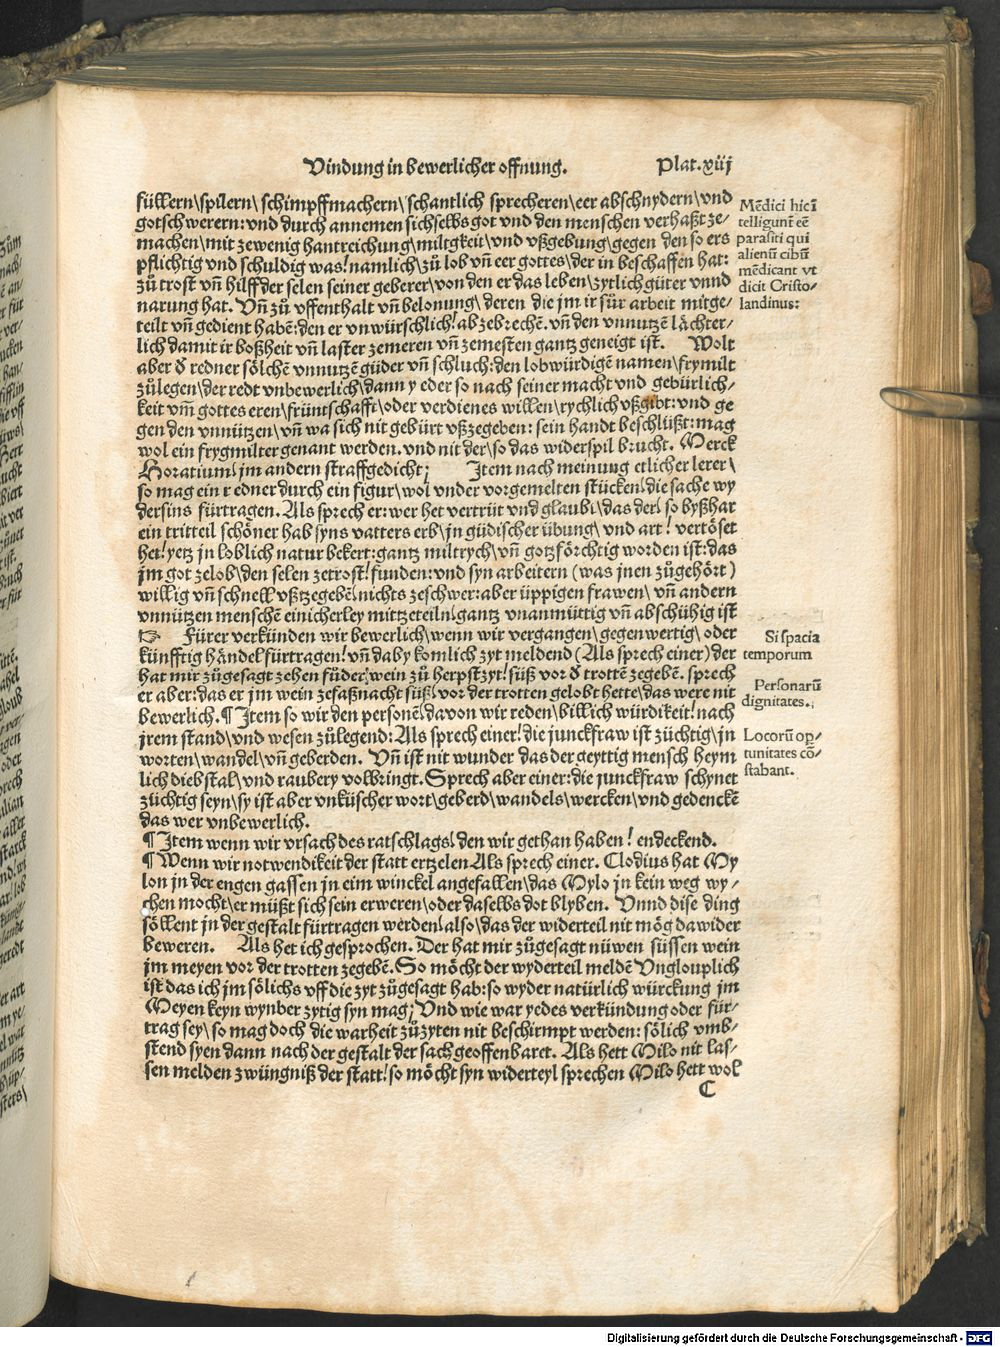 Vindung in bewerlicher offnung. Plat. xiij
füllern\ spilern\ schimpffmachern\ schantlich sprecheren\ eer abschnydern\ vnd
gotschwerern: vnd durch annemen sichselbs got vnd den menschen verhaßt ze/
machen\ mit zewenig hantreichung\ miltgkeit\ vnd vßgebung\ gegen den so ers
pflichtig vnd schuldig was! namlich\ zů lob vn̄ eer gottes\ der in beschaffen hat:
zů trost vn̄ hilff der selen seiner geberer\ von den er das leben\ zytlich gůter vnnd
narung hat. Vn̄ zů vffenthalt vn̄ belonung\ deren die jm ir für arbeit mitge/
teilt vn̄ gedient habē: den er vnwürschlich! abzebrechē. vn̄ den vnnutzē lächter/
lich damit ir boßheit vn̄ laster zemeren vn̄ zemesten gantz geneigt ist. Wolt
aber d̄ redner sölchē vnnutzē güder vn̄ schluch: den lobwürdigen namen\ frymilt
zůlegen\ der redt vnbewerlich\ dann yeder so nach seiner macht vnd gebürlich/
keit vm̄ gottes eren\ früntschafft\ oder verdienes willen\ rychlich vßgibt: vnd ge
gen den vnnützen\ vn̄ wa sich nit gebürt vßzegeben: sein handt beschlüßt: mag
wol ein frygmilter genant werden. vnd nit der\ so das widerspil brucht. Merck
Horatium\ jm andern straffgedicht; Item nach meinung etlicher lerer\
so mag ein redner durch ein figur\ wol vnder vorgemelten stücken\ die sache wy
dersins fürtragen. Als sprech er: wer het vertrüt vnd glaubt\ das der\ so byßhar
ein tritteil schöner hab syns vatters erb\ jn güdischer übung\ vnd art! vertöset
het! yetz jn loblich natur bekert: gantz miltrych\ vn̄ gotzförchtig worden ist: das
jm got zelob\ den selen zetrost! funden: vnd syn arbeitern (was jnen zůgehört)
willig vn̄ schnell vßtzegebē\ nichts zeschwer: aber üppigen frawen\ vn̄ andern
vnnützen menschē einicherley mitzeteiln\ gantz vnanmüttig vn̄ abschühig ist
☞ Fürer verkünden wir bewerlich\ wenn wir vergangen\ gegenwertig\ oder
künfftig händel fürtragen! vn̄ daby komlich zyt meldend (Als sprech einer) der
hat mir zůgesagt zehen fůder\ wein zů herpstzyt! süß vor d̄ trottē zegebē. sprech
er aber: das er jm wein zefaßnacht süß\ vor der trotten gelobt hette\ das were nit
bewerlich. ¶ Item so wir den personē\ davon wir reden\ billich würdikeit! nach
jrem stand\ vnd wesen zůlegend: Als sprech einer! die junckfraw ist züchtig\ jn
worten\ wandel\ vn̄ geberden. Vn̄ ist nit wunder das der geyttig mensch heym
lich diebstal\ vnd raubery volbringt. Sprech aber einer: die junckfraw schynet
züchtig seyn\ sy ist aber vnküscher wort\ geberd\ wandels\ wercken\ vnd gedenckē
das wer vnbewerlich.
¶ Item wenn wir vrsach des ratschlags\ den wir gethan haben! endeckend.
¶ Wenn wir notwendikeit der statt ertzelen Als sprech einer. Clodius hat My
lon jn der engen gassen jn eim winckel angefallen\ das Mylo jn kein weg wy/
chen mocht\ er müßt sich sein erweren\ oder daselbs dot blyben. Vnnd dise ding
söllent jn der gestalt fürtragen werden\ also\ das der widerteil nit mög dawider
beweren. Als het ich gesprochen. Der hat mir zůgesagt nüwen süssen wein
jm meyen vor der trotten zegebē. So möcht der wyderteil meldē Vnglouplich
ist das ich jm sölichs vff die zyt zůgesagt hab: so wyder natürlich würckung jm
Meyen keyn wynber zytig syn mag; Vnd wie war yedes verkündung oder für/
trag sey\ so mag doch die warheit zůzyten nit beschirmpt werden: sölich vmb/
stend syen dann nach der gestalt der sach geoffenbaret. Als hett Milo nit las/
sen melden zwüngniß der statt! so möcht syn widerteyl sprechen Milo hett wol
C
Mēdici hic ī
telligunt eē
parasiti qui
alienū cibū
mēdicant vt
dicit Cristo-
landinus:
Si spacia
temporum
Personarū
dignitates.
Locorū op/
tunitates cō/
stabant.
Digitalisierung gefördert durch die Deutsche Forschungsgemeinschaft - DFG